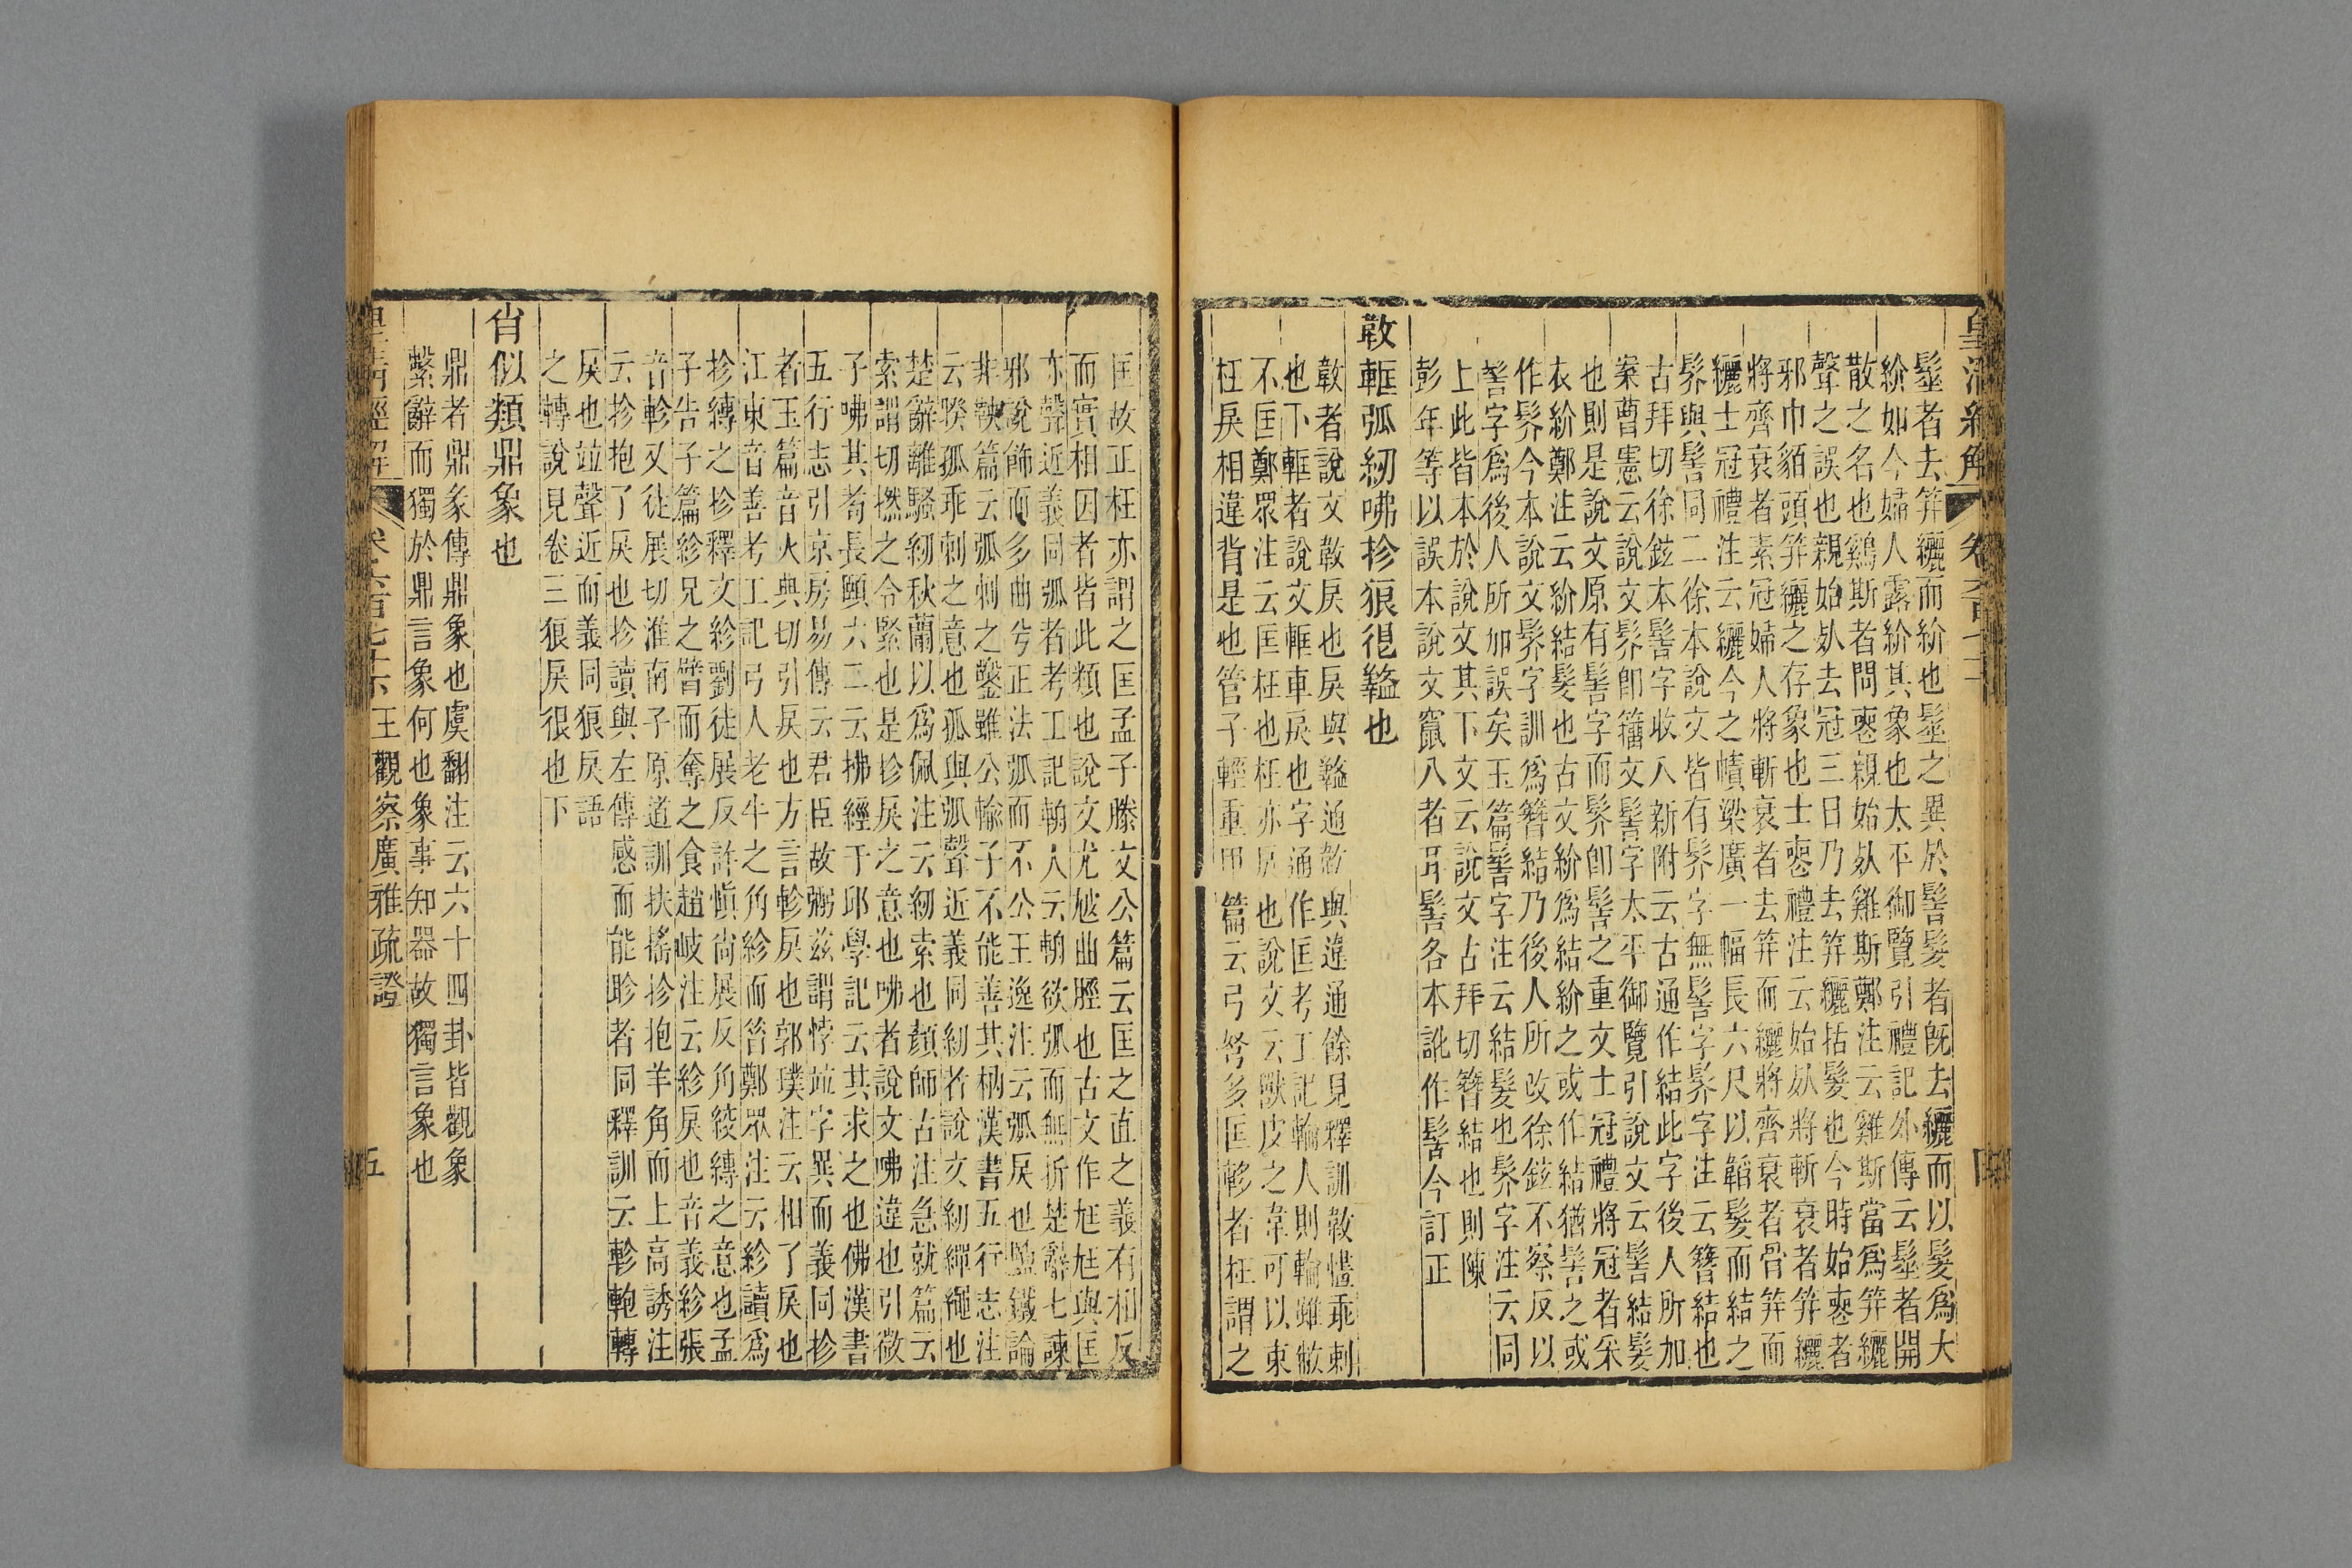 皇清經解
卷六百七十
髽者去笄纚而紒也髽之異於髻髮者旣去纚而以髮爲大
紒如今婦人露紒其象也太平御覽引禮記外傳云髽者開
散之名也鷄斯者問喪親始㱙雞斯鄭注云雞斯當爲笄纚
聲之誤也親始㱙去冠三日乃去笄纚括髮也今時始喪者
邪巾貊頭笄纚之存象也士喪禮注云始㱙將斬衰者笄纚
將齊衰者素冠婦人將斬衰者去笄而纚將齊衰者骨笄而
纚士冠禮注云纚今之幘梁廣一幅長六尺以韜髮而結之
髺與髻同二徐本說文皆有髺字無髻字髺字注云簪結也
古拜切徐鉉本髻字收入新附云古通作結此字後人所加
案曹憲云說文髺卽籒文髻字太平御覽引說文云髻結髮
也則是說文原有髻字而髺卽髻之重文士冠禮將冠者采
衣紒鄭注云紒結髮也古文紒爲結紒之或作結猶髻之或
作髺今本說文髺字訓爲簪結乃後人所改徐鉉不察反以
髻字爲後人所加誤矣玉篇髻字注云結髮也髺字注云同
上此皆本於說文其下文云說文占拜切簪結也則陳
彭年等以誤本說文竄入者耳髻各本訛作髻今訂正
敹軭弧紉咈抮狠很盭也
敹者說文敹戾也戾與盭通敹與違通餘見釋訓敹愇乖剌
也下軭者說文軭車戾也字通作匡考工記輪人則輪雖敝
不匡鄭眾注云匡枉也枉亦戾也說文云獸皮之韋可以束
枉戾相違背是也管子輕重甲篇云弓弩多匡軫者枉謂之
匡故正枉亦謂之匡孟子滕文公篇云匡之直之義有相反
而實相因者皆此類也說文尢𡯁曲脛也古文作尩尩與匡
亦聲近義同弧者考工記輈人云輈欲弧而無折楚辭七諫
邪說飾而多曲兮正法弧而不公王逸注云弧戾也鹽鐵論
非鞅篇云弧刺之鑿雖公輸子不能善其枘漢書五行志注
云睽孤乖刺之意也孤與弧聲近義同紉者說文紉繟繩也
楚辭離騷紉秋蘭以爲佩注云紉索也顏師古注急就篇云
索謂切撚之令緊也是抮戾之意也咈者說文咈違也引微
子咈其耇長頤六二云拂經于邱學記云其求之也佛漢書
五行志引京房易傳云君臣故弼茲謂悖竝字異而義同抮
者玉篇音火典切引戾也方言軫戾也郭璞注云相了戾也
江東音善考工記弓人老牛之角紾而㫺鄭眾注云紾讀爲
抮縛之抮釋文紾劉徒展反許愼尚展反角絞縛之意也孟
子告子篇紾兄之臂而奪之食趙岐注云紾戾也音義紾張
音軫又徒展切淮南子原道訓扶搖抮抱羊角而上高誘注
云抮抱了戾也抮讀與左傳感而能眕者同釋訓云軫軳轉
戾也竝聲近而義同狠戾語
之轉說見卷三狠戾很也下
肖似類鼎象也
鼎者鼎彖傳鼎象也虞翻注云六十四卦皆觀象
繫辭而獨於鼎言象何也象事知器故獨言象也
皇清經解
卷六百七十下
王觀察廣雅疏證
五